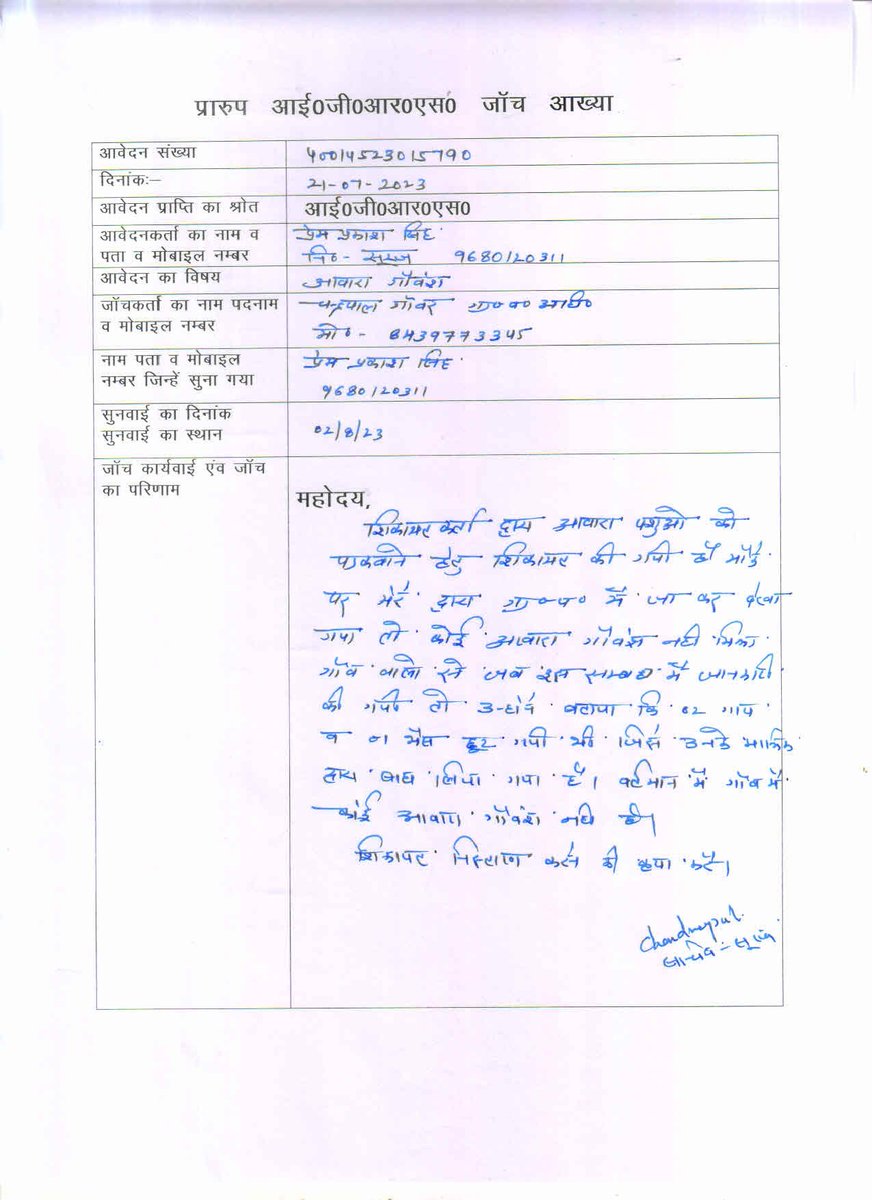 प्रारुप आई0जी0आर0एस0 जॉच आख्या
आवेदन संख्या 40014523015790
दिनांकः– 21-07-2023
आवेदन प्राप्ति का श्रोत आई0जी0आर0एस0
आवेदनकर्ता का नाम व प्रेम प्रकाश सिंह
पता व मोबाइल नम्बर नि०- सूरज 9680120311
आवेदन का विषय आवारा गौवंश
जॉचकर्ता का नाम पदनाम चन्द्रपाल ग्रा०प०अधि०
व मोबाइल नम्बर मो०- 8439773345
नाम पता व मोबाइल प्रेम प्रकाश सिंह
नम्बर जिन्हें सुना गया 9680120311
सुनवाई का दिनांक
सुनवाई का स्थान 02/8/23
जॉच कार्यवाई एंव जॉच
का परिणाम
महोदय,
शिकायत कर्ता द्वारा आवारा पशुओ को
पकडवाने हेतु शिकायत की गयी है मौके
पर मेरे द्वारा ग्रा०प० में जा कर देखा
गया तो कोई आवारा गौवंश नही मिला
गॉव वालो से जब इस सम्बध में जानकारी
की गयी तो उन्होंने बताया कि 02 गाय
व 01 भैस छूट गयी थी जिसे उनके मालिक
द्वारा बाध लिया गया है। वर्तमान में गॉव में
कोई आवारा गौवंश नही है।
शिकायत निस्तारण करने की कृपा करें।
Chandrapal